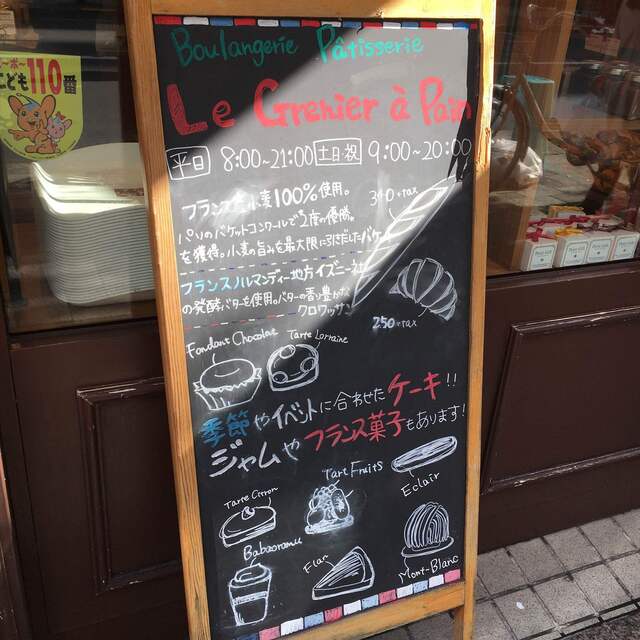 Boulangerie Pâtisserie
Le Grenier à Pain
平日 8:00~21:00 土日祝 9:00~20:00
小麦100%使用。
パリのバゲットコンクールで2度の優勝。
を獲得。小麦の旨みを最大限に引きだしたバゲ
340+tax
フランス ノルマンディー地方イズニー社
の発酵バターを使用。バターの香り豊かな
クロワッサン
250+tax
Fondant Chocolat
Tarte Lorraine
季節やイベントに合わせたケーキ!!
ジャムやフランス菓子もあります!
Tart Fruits
Eclair
Tarte Citron
Babaoromu
Flan
Mont-Blanc
こども110番